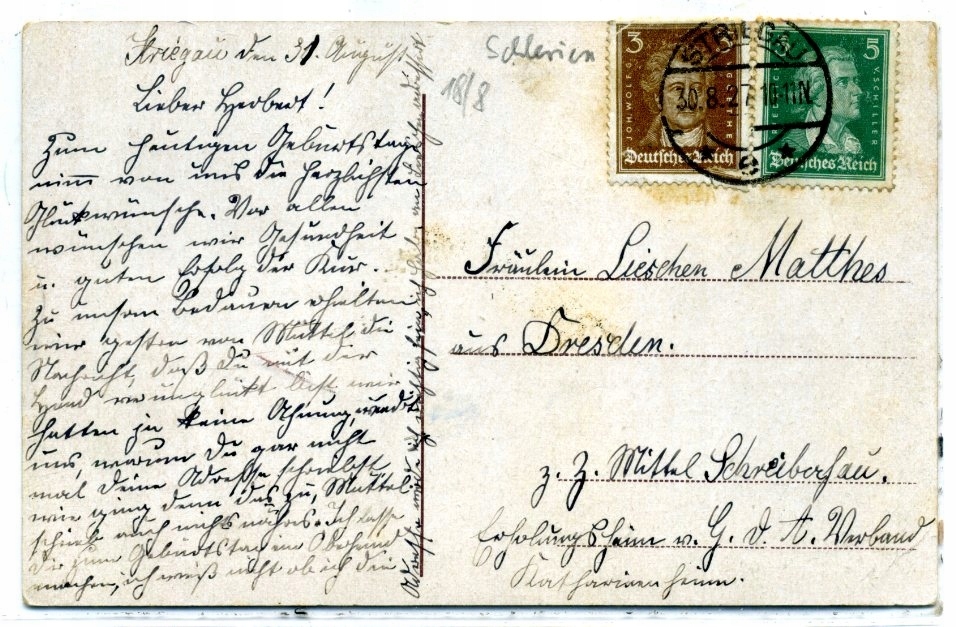 Striegau den 31. August
Lieber Herbert!
Zum heutigen Geburtstage
nimm von uns die herzlichsten
Glückwünsche. Vor allen
wünschen wir Gesundheit
u. guten Erfolg der Kur.
Zu unserm Bedauern erhielten
wir gestern von Muttel die
Nachricht, daß Du mit der
Hand verunglückt bist wir
hatten ja keine Ahnung,
uns, warum Du gar nicht
mal deine Adresse schreibst
wie ging denn das zu, Muttel
schrieb auch nichts näheres. Ich lasse
Dir zum Gebürtstag ein Oberhemd
machen, ich weiß nicht ob ich die
Schlesien
18/8
3 3
JOH. WOLFG. GOETHE
Deutsches Reich
5 5
FR. V. SCHILLER
Deutsches Reich
STRIEGAU
30.8.27.10-11N.
Fräulein Lieschen Matthes
aus Dresden.
z. Z. Mittel Schreiberhau.
Erholungsheim v. G. d. A. Verband
Katharinenheim.